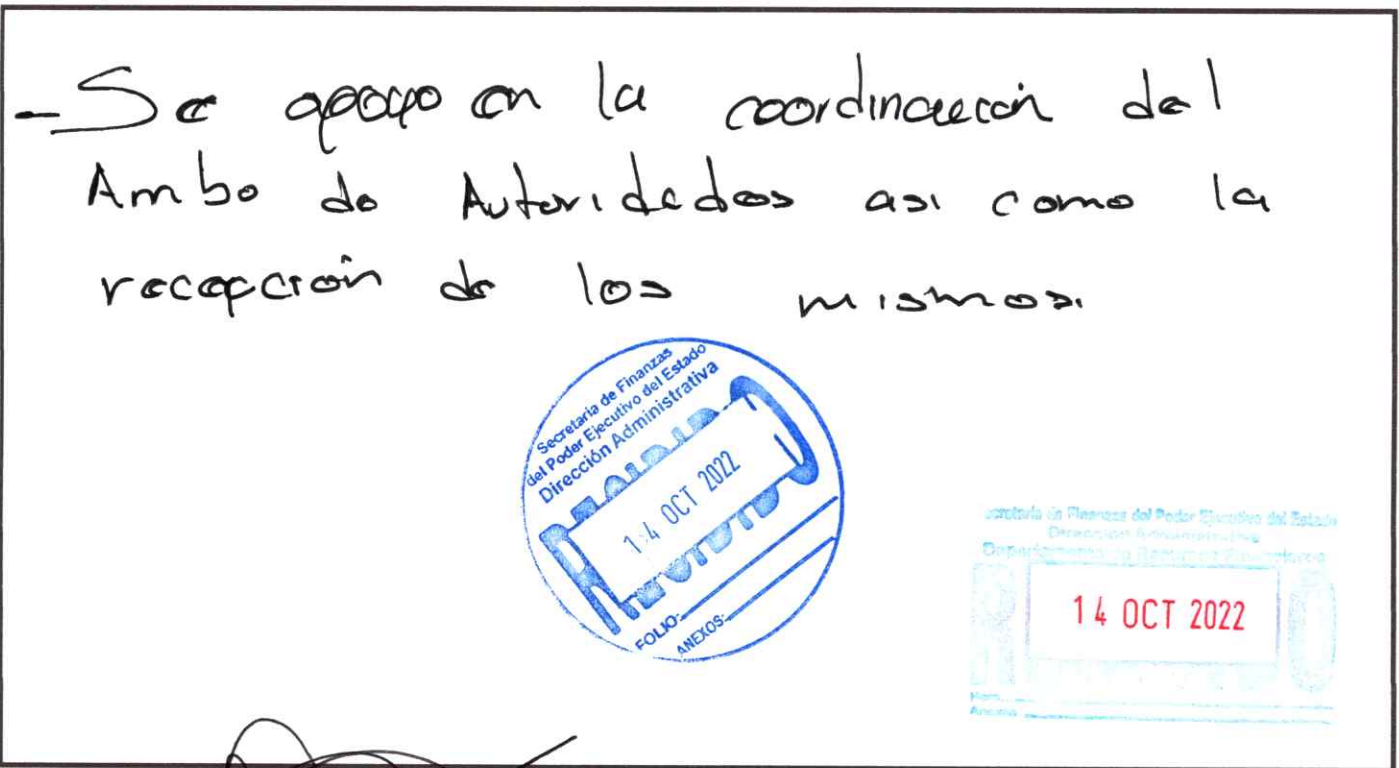 - Se apoyo en la coordinación del
Ambo de Autoridades asi como la
recepción de los mismos.
Secretaria de Finanzas
del Poder Ejecutivo del Estado
Dirección Administrativa
RECIBIDO
14 OCT 2022
FOLIO:
ANEXOS:
Secretaria de Finanzas del Poder Ejecutivo del Estado
Dirección Administrativa
Departamento de Recursos Financieros
14 OCT 2022
Hora:
Anexos: